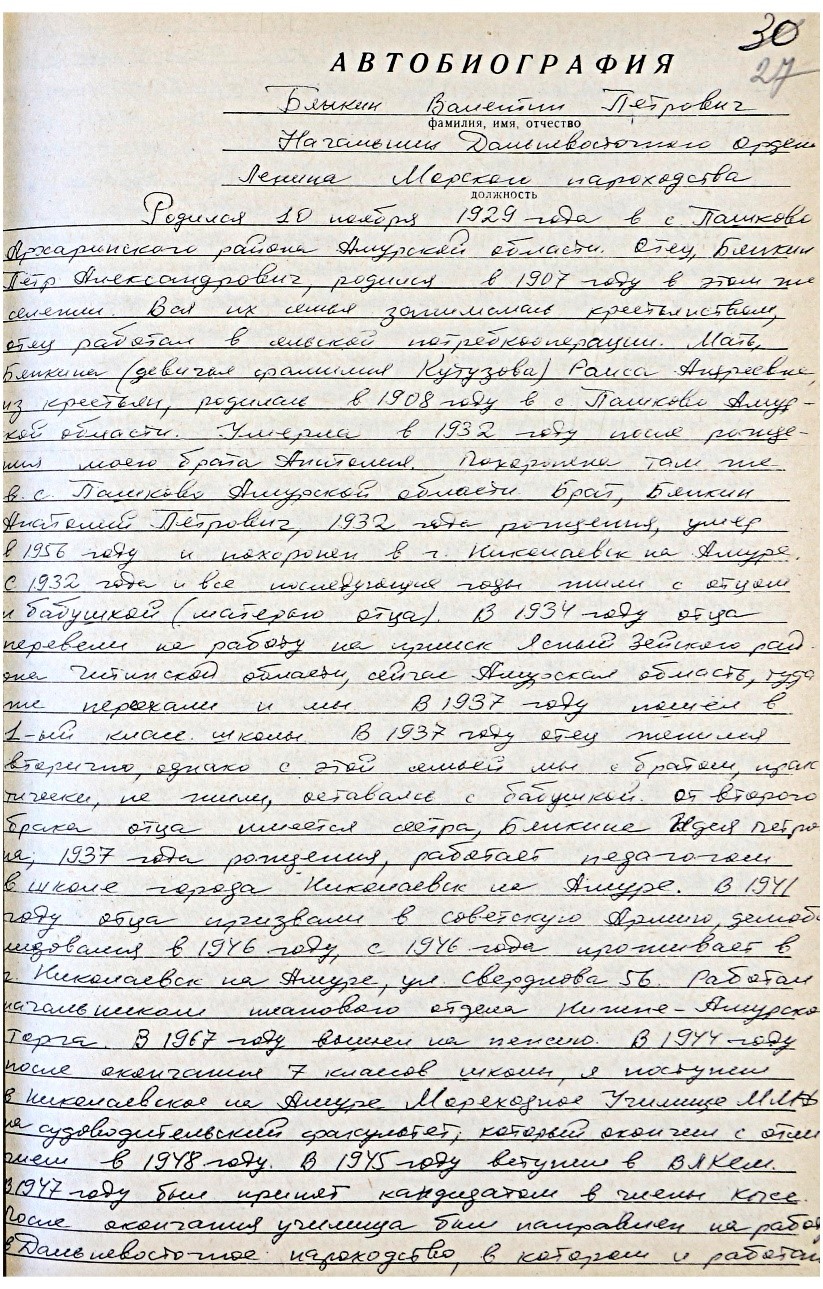 30
27
АВТОБИОГРАФИЯ
Бянкин Валентин Петрович
фамилия, имя, отчество
Начальник Дальневосточного ордена
Ленина Морского пароходства
должность
Родился 10 ноября 1929 года в с. Пашково
Архаринского района Амурской области. Отец, Бянкин
Пётр Александрович, родился в 1907 году в этом же
селении. Вся их семья занималась крестьянством,
отец работал в сельской потребкооперации. Мать,
Бянкина (девичья фамилия Кутузова) Раиса Андреевна,
из крестьян, родилась в 1908 году в с Пашково Амур-
кой области. Умерла в 1932 году после рожде-
ния моего брата Анатолия. Похоронена там же
в с. Пашково Амурской области. Брат, Бянкин
Анатолий Петрович, 1932 года рождения, умер
в 1956 году и похоронен в г. Николаевск на Амуре.
С 1932 года и все последующие годы жили с отцом
и бабушкой (матерью отца). В 1934 году отца
перевели на работу на прииск Ясный Зейского рай-
она Читинской области, сейчас Амурская область, туда
же переехали и мы. В 1937 году пошёл в
1-ый класс школы. В 1937 году отец женился
вторично, однако с этой семьей мы с братом, прак
тически, не жили, оставаясь с бабушкой. От второго
брака отца имеется сестра, Бянкина Идея Петро
на, 1937 года рождения, работает педагогом
в школе города Николаевск на Амуре. В 1941
году отца призвали в советскую Армию, демоби
лизовался в 1946 году, с 1946 года проживает в
г. Николаевск на Амуре, ул. Свердлова 56. Работал
начальником планового отдела Нижне-Амурско
Торга. В 1967 году вышел на пенсию. В 1944 году
после окончания 7 классов школы, я поступил
в Николаевское на Амуре Мореходное Училище ММФ
на судоводительский факультет, который окончил с отли
чием в 1948 году. В 1945 году вступил в ВЛКСМ.
В 1947 году был принят кандидатом в члены КПСС.
После окончания училища был направлен на работ
в Дальневосточное пароходство, в котором и работал